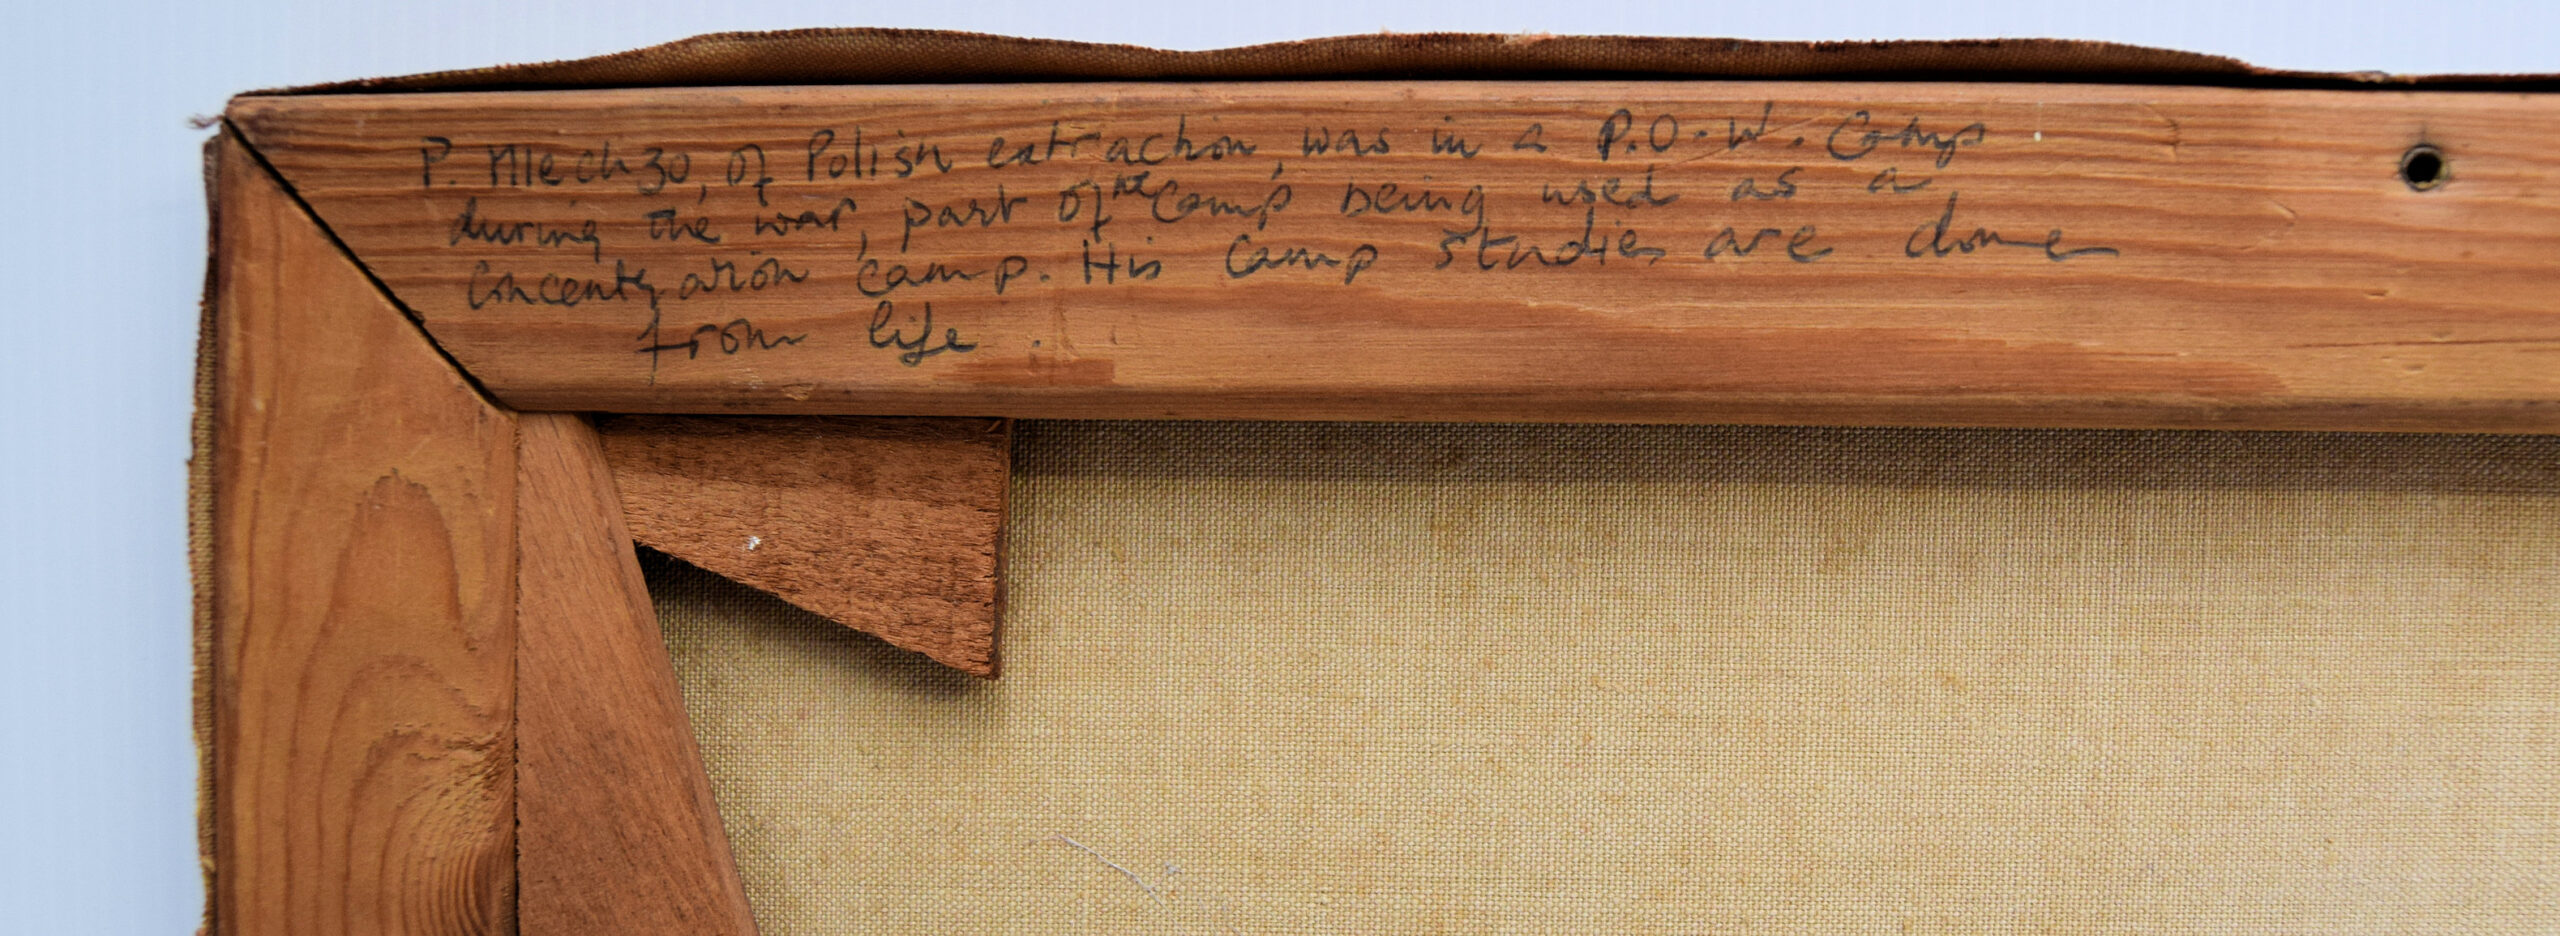 P. Mlechzo, of Polish extraction, was in a P.O.W. Camp
during the war, part of the camp being used as a
Concentration camp. His Camp studies are done
from life.